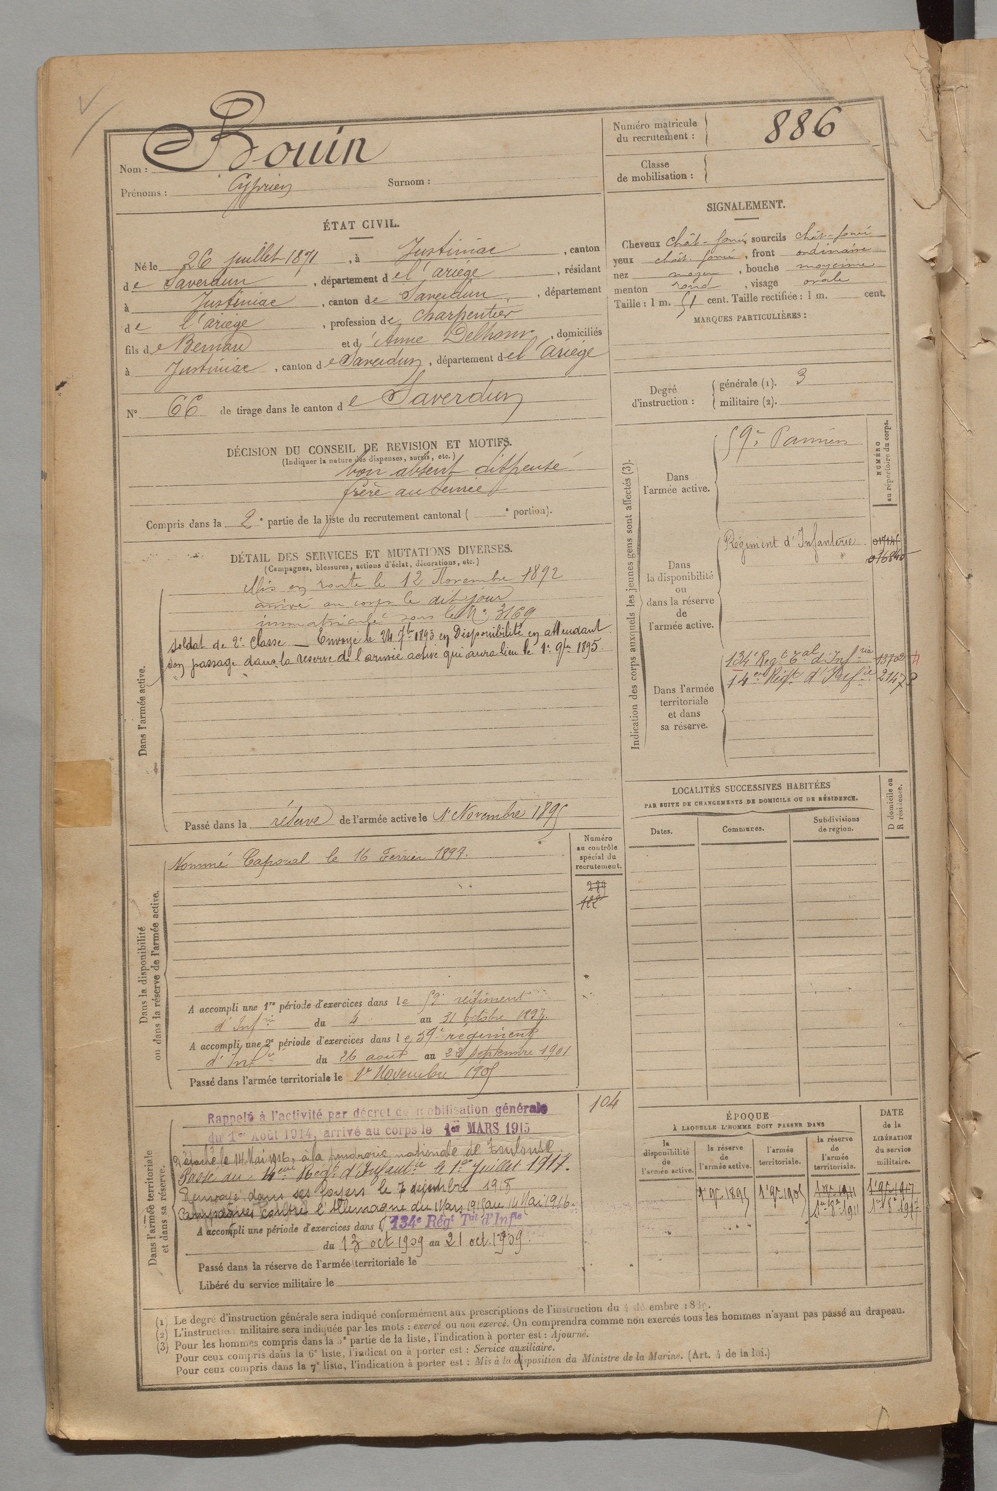 Nom : Bouin
Prénoms : Cyprien Surnom :
Numéro matricule du recrutement : 886
Classe de mobilisation :
ÉTAT CIVIL.
Né le 26 juillet 1871, à Justiniac, canton
de Saverdun, département de l'ariège, résidant
à Justiniac, canton de Saverdun, département
de l'ariège, profession de charpentier
fils de Bernard et d'Anne Delhom, domiciliés
à Justiniac, canton de Saverdun, département de l'Ariège
N° 66 de tirage dans le canton de Saverdun
SIGNALEMENT.
Cheveux chât-foncé, sourcils chât-foncé
yeux chât-foncé, front ordinaire
nez moyen, bouche moyenne
menton rond, visage ovale
Taille : 1 m. 51 cent. Taille rectifiée : 1 m. cent.
MARQUES PARTICULIÈRES :
Degré d'instruction : générale (1). 3
militaire (2).
DÉCISION DU CONSEIL DE REVISION ET MOTIFS.
(Indiquer la nature des dispenses, sursis, etc.)
bon absent dispensé
frère au service
Compris dans la 2e partie de la liste du recrutement cantonal ( e portion).
DÉTAIL DES SERVICES ET MUTATIONS DIVERSES.
(Campagnes, blessures, actions d'éclat, décorations, etc.)
Dans l'armée active.
Mis en route le 12 Novembre 1892
arrivé au corps le dit jour
immatriculé sous le N° 3169
Soldat de 2e classe — Envoyé le 24 7bre 1893 en Disponibilité en attendant
son passage dans la réserve de l'armée active qui aura lieu le 1er 9bre 1895.
Passé dans la réserve de l'armée active le 1er Novembre 1895
Indication des corps auxquels les jeunes gens sont affectés (3).
NUMÉRO au répertoire du corps.
Dans l'armée active.
59e Pamiers
Dans la disponibilité ou dans la réserve de l'armée active.
Régiment d'Infanterie
Dans l'armée territoriale et dans sa réserve.
134e Régt Tal d'Infrie
14eme Régt d'Infie
LOCALITÉS SUCCESSIVES HABITÉES
PAR SUITE DE CHANGEMENTS DE DOMICILE OU DE RÉSIDENCE.
Dates. Communes. Subdivisions de région. D domicile ou R résidence.
Dans la disponibilité ou dans la réserve de l'armée active.
Numéro au contrôle spécial du recrutement.
Nommé Caporal le 16 Février 1899.
A accompli une 1re période d'exercices dans le 59e régiment
d'Infrie du 4 au 31 octobre 1897
A accompli une 2e période d'exercices dans le 59e régiment
d'Infrie du 26 aout au 22 septembre 1901
Passé dans l'armée territoriale le 1er Novembre 1905
Dans l'armée territoriale et dans sa réserve.
104
Rappelé à l'activité par décret de mobilisation générale
du 1er Août 1914, arrivé au corps le 1er MARS 1915
Détaché le 14 Mai 1916, à la poudrerie nationale de Toulouse.
Passé au 14eme Régt d'Infantrie le 1er Juillet 1917.
Renvoyé dans ses foyers le 7 décembre 1918
Campagnes Contre l'Allemagne du 1 Mars 1915 au 14 Mai 1916.
A accompli une période d'exercices dans l 134e Régt Tal d'Infie
du 13 oct 1909 au 21 oct 1909
Passé dans la réserve de l'armée territoriale le
Libéré du service militaire le
ÉPOQUE
À LAQUELLE L'HOMME DOIT PASSER DANS
la disponibilité de l'armée active. la réserve de l'armée active. l'armée territoriale. la réserve de l'armée territoriale.
DATE de la LIBÉRATION du service militaire.
1er 9bre 1895 1er 9bre 1905
(1) Le degré d'instruction générale sera indiqué conformément aux prescriptions de l'instruction du 4 décembre 1889.
(2) L'instruction militaire sera indiquée par les mots : exercé ou non exercé. On comprendra comme non exercés tous les hommes n'ayant pas passé au drapeau.
(3) Pour les hommes compris dans la 5e partie de la liste, l'indication à porter est : Ajourné.
Pour ceux compris dans la 6e liste, l'indication à porter est : Service auxiliaire.
Pour ceux compris dans la 7e liste, l'indication à porter est : Mis à la disposition du Ministre de la Marine. (Art. 4 de la loi.)